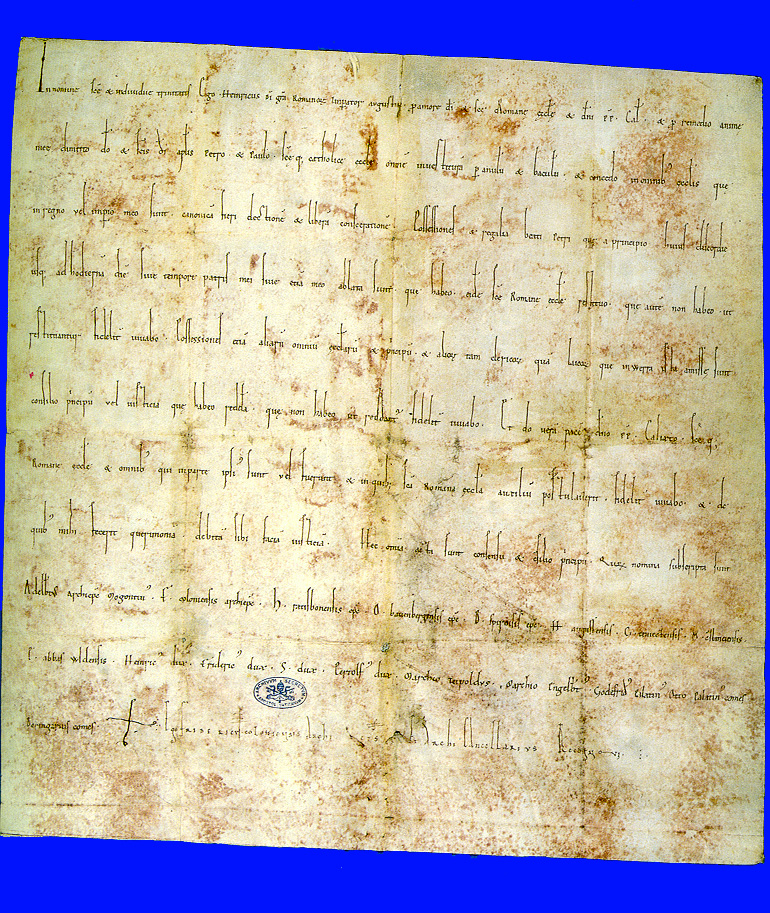 In nomine sce & individue trinitatis Ego Heinricus di gra Romanoꝝ Imperator augustus p amore di & sce Romane eccle & dni pp. Cal. & p remedio anime
mee dimitto do & scis di aplis Petro & Paulo sceq catholice eccle omne investitura p anulu & baculu & concedo in omnib ecclis que
in regno vel imperio meo sunt canonica fieri electione & libera consecratione. Possessiones & regalia beati Petri que a principio huius discordie
usq ad hodierna die sive tempore patris mei sive etia meo ablata sunt que habeo eide sce Romane eccle restituo que aute non habeo ut
restituantur fidelit iuvabo. Possessiones etia aliaru omniu eccleiaru & principu & alioꝝ tam clericoꝝ qua laicoꝝ que in werra ista amisse sunt
consilio principu vel iusticia que habeo redda que non habeo ut reddant fidelit iuvabo. Et do vera pace dno pp. Calixto sceq
Romane eccle & omnib qui in parte ipsi sunt vel fuerunt & in quib sca Romana eccla auxiliu postulaverit fidelit iuvabo & de
quib mihi fecerit querimonia debita sibi facia iusticia. Hec omia acta sunt consensu & csilio principu Quoꝝ nomina subscripta sunt
Adelbtus archiepc Mogontin. F. coloniensis archiepc. H. ratisbonensis epc O. bauenbergensis epc B. spirensis epc H. augustensis. G. traiectensis. O. cstanciensis.
E. abbas wldensis. Heinric dux. Fridericus dux. S. dux. Pertolf dux. Marchio teipoldus. Marchio Engelbt. Godefrid Palatin. Otto Palatin comes
Beringarius comes Fridericus coloniensis archi eps & Archicancellarius Recognovi
ARCHIVUM SECRETUM